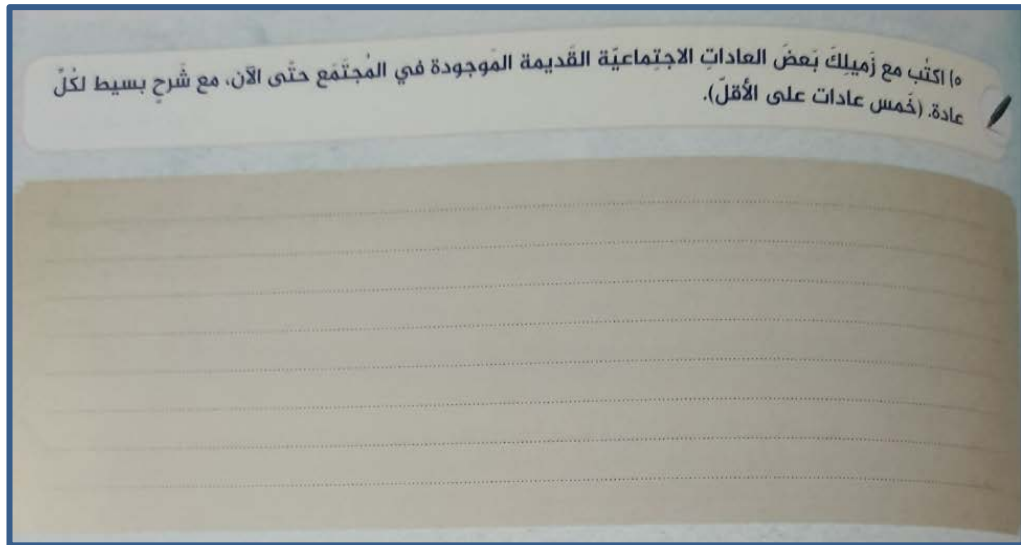 ٥) اكتُب مع زَميلِكَ بَعضَ العاداتِ الاجتِماعيّة القَديمة المَوجودة في المُجتَمَع حتَّى الآن، مع شَرحٍ بسيط لكُلِّ
عادة. (خَمس عادات على الأقلّ).